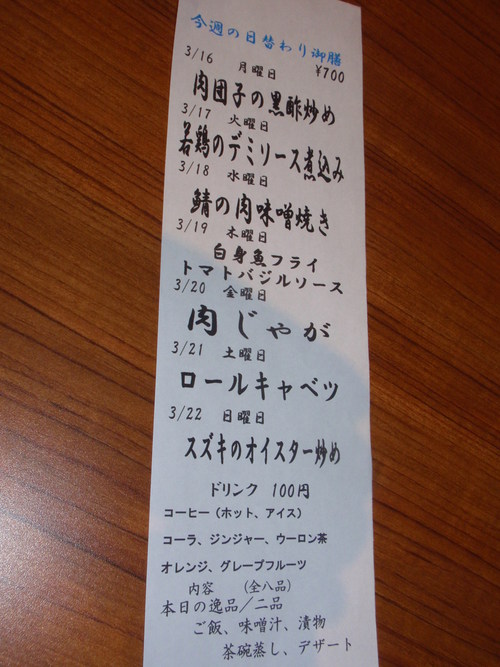 今週の日替わり御膳
3/16 月曜日 ¥700
肉団子の黒酢炒め
3/17 火曜日
若鶏のデミソース煮込み
3/18 水曜日
鯖の肉味噌焼き
3/19 木曜日
白身魚フライ
トマトバジルソース
3/20 金曜日
肉じゃが
3/21 土曜日
ロールキャベツ
3/22 日曜日
スズキのオイスター炒め
ドリンク 100円
コーヒー(ホット、アイス)
コーラ、ジンジャー、ウーロン茶
オレンジ、グレープフルーツ
内容 (全八品)
本日の逸品/二品
ご飯、味噌汁、漬物
茶碗蒸し、デザート